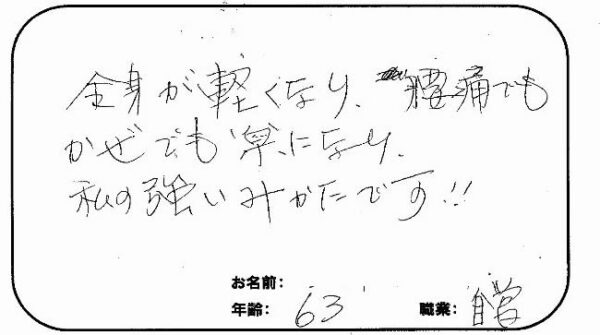 全身が軽くなり、腰痛でも
かぜでも楽になり、
私の強いみかたです!!
お名前:
年齢: 63 職業: 自営